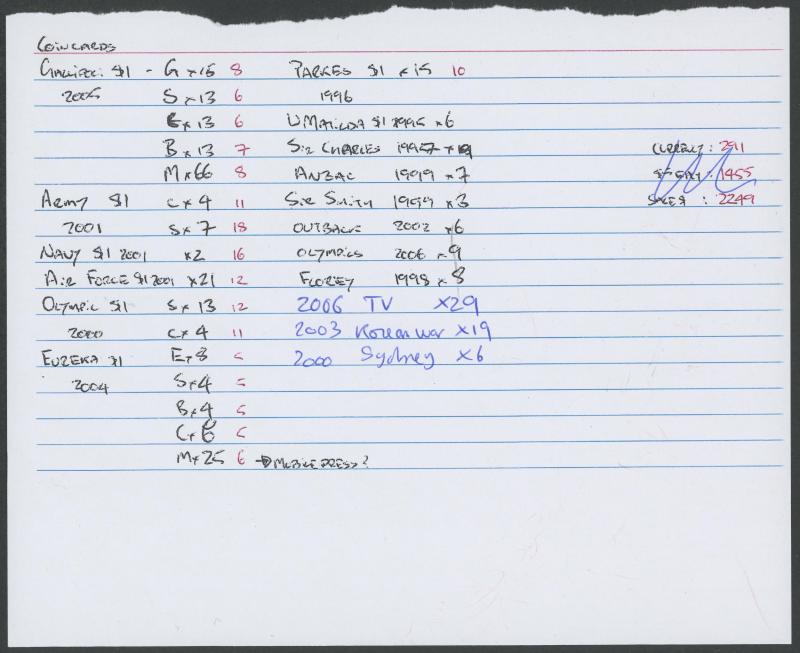 COINCARDS
GALLIPOLI $1 - G x 15 8
2005 S x 13 6
C x 13 6
B x 13 7
M x 66 8
ARMY $1 C x 4 11
2001 S x 7 18
NAVY $1 2001 x2 16
AIR FORCE $1 2001 x21 12
OLYMPIC $1 S x 13 12
2000 C x 4 11
EUREKA $1 E x 8 5
2004 S x 4 5
B x 4 5
C x 6 5
M x 25 6 → MOBILE PRESS?
PARKES $1 x 15 10
1996
W MATILDA $1 1995 x 6
SIR CHARLES 1997 x
ANZAC 1999 x 7
SIR SMITH 1997 x 3
OUTBACK 2002 x 6
OLYMPICS 2006 x 9
FLOREY 1998 x 8
2006 TV x29
2003 Korean war x19
2000 Sydney x6
CURRENT : 291
: 1455
SALES : 2249